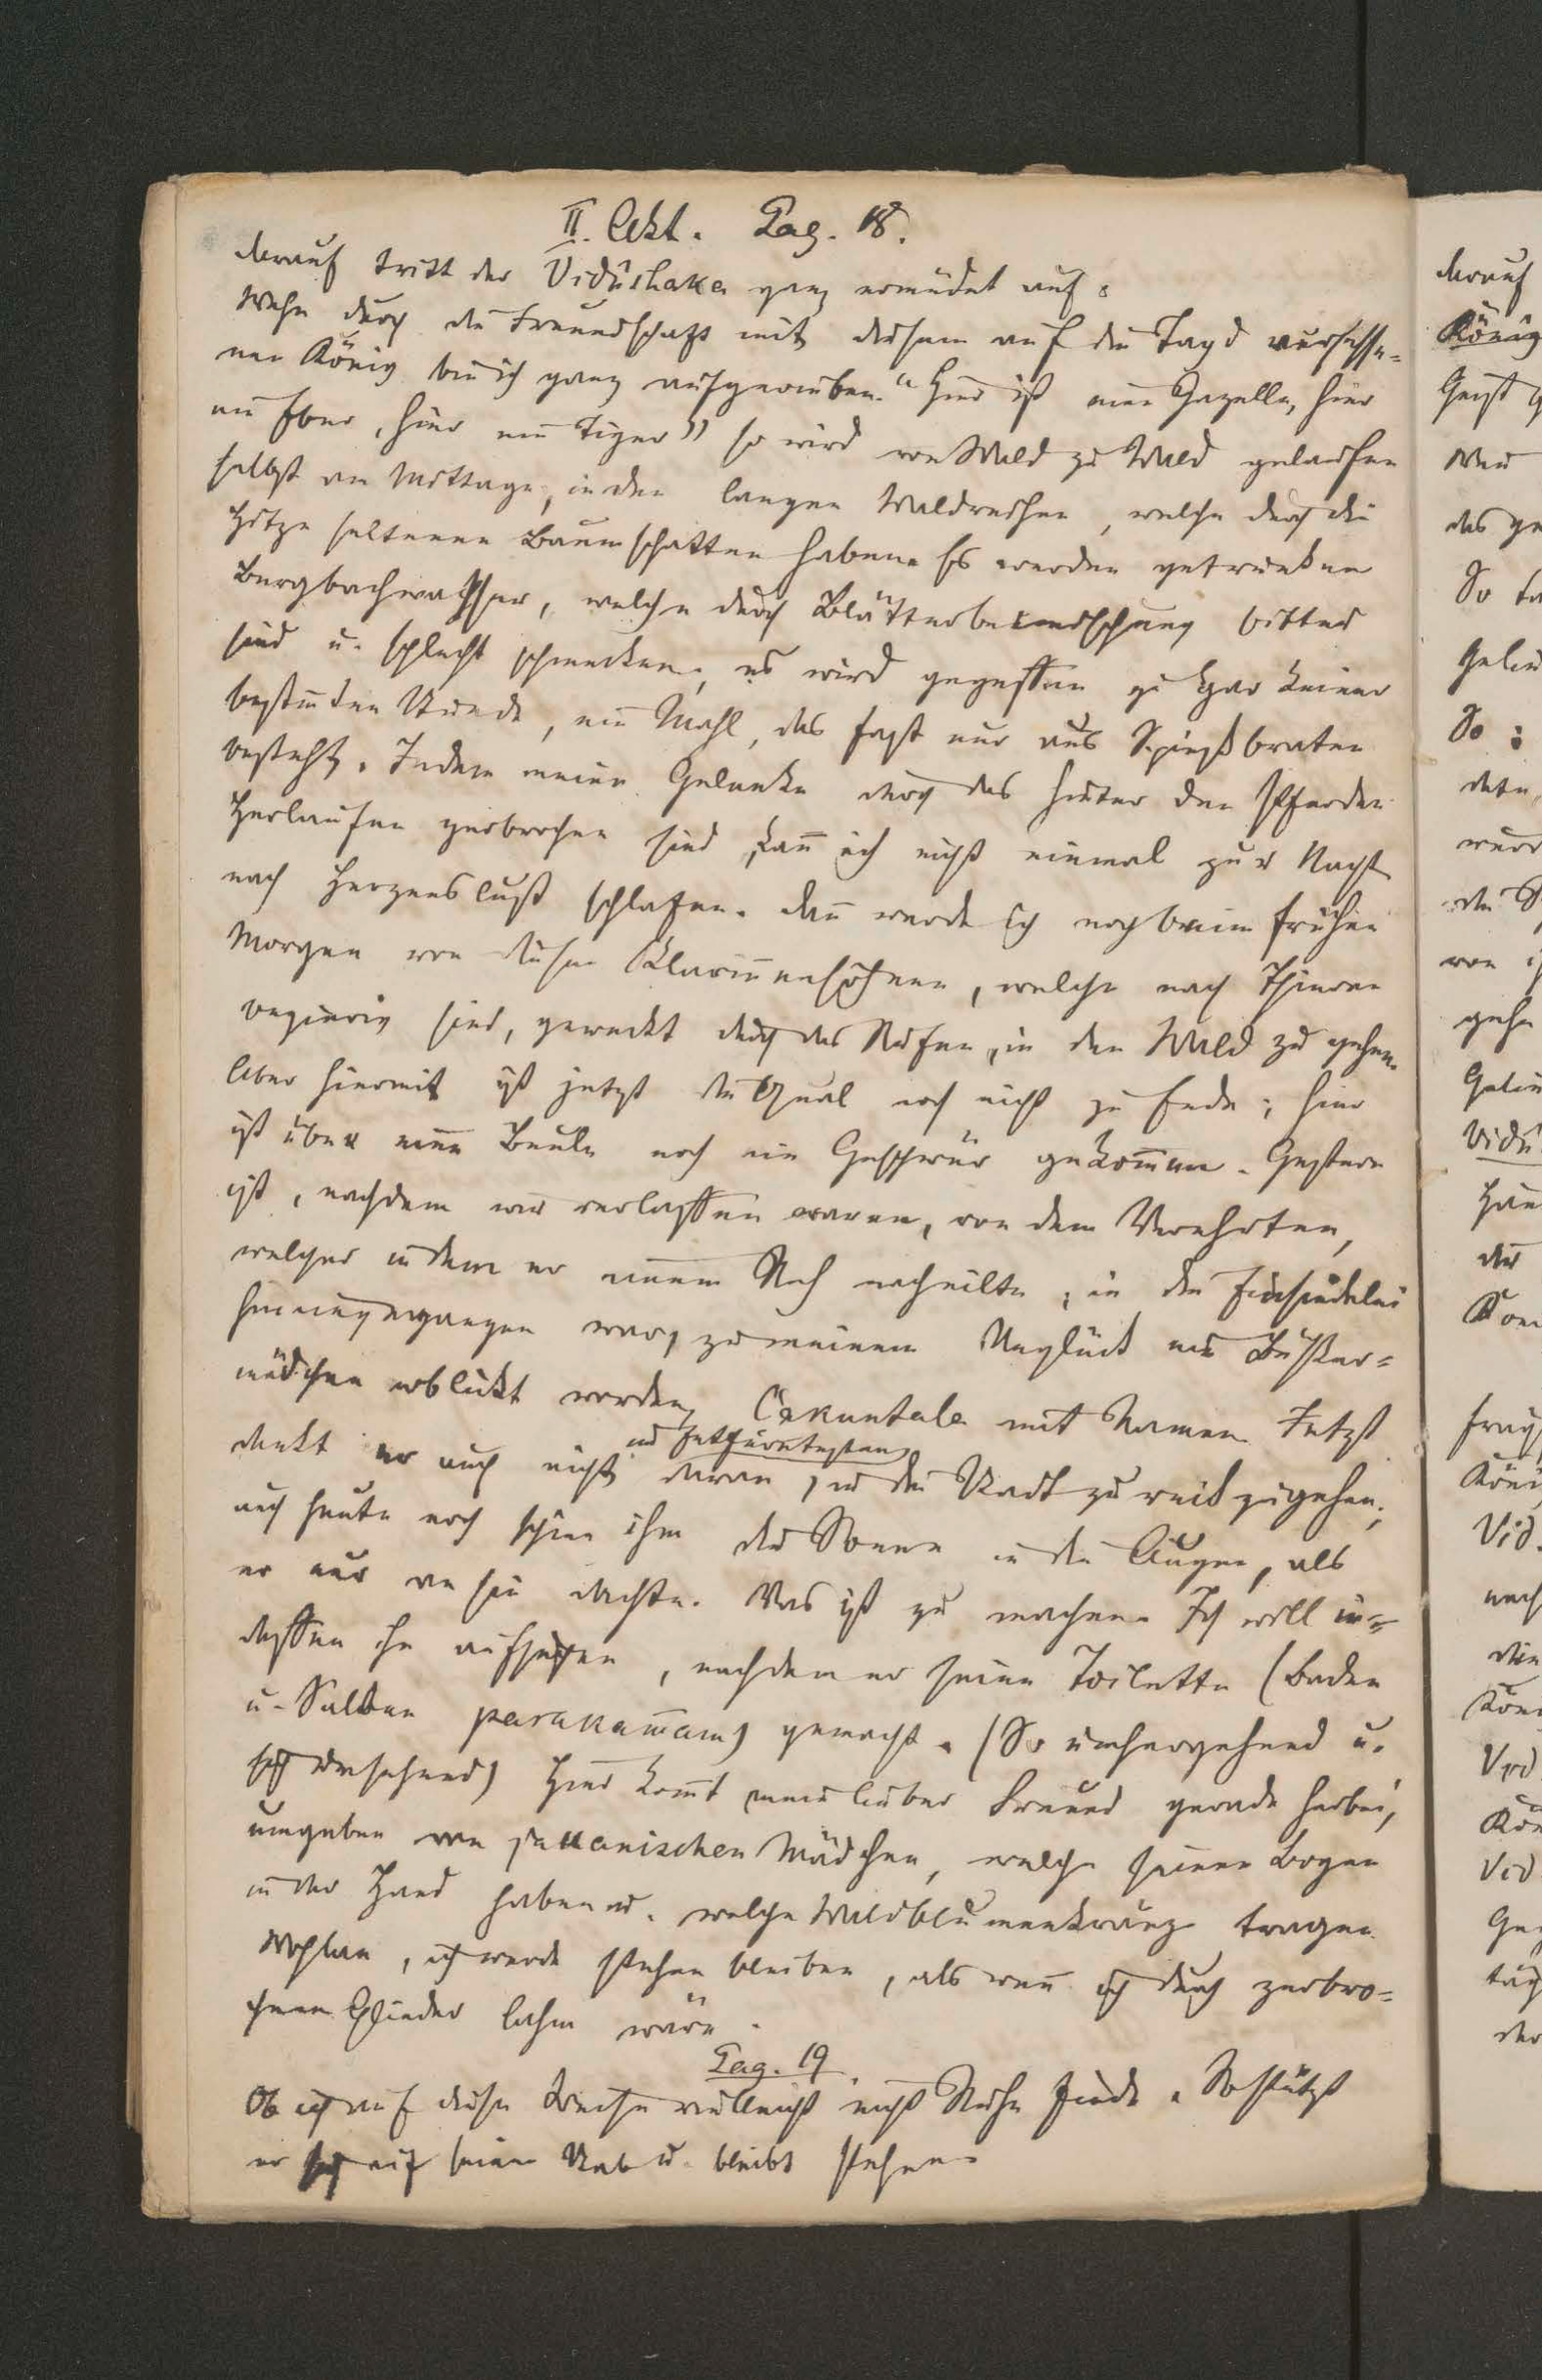 II. Akt. Pag. 18.
darauf tritt der Vidûshaka ganz ermüdet auf:
Wehe durch die Freundschaft mit diesem auf die Jagd versesse-
nen König bin ich ganz aufgerieben. "Hier ist eine Gazelle, hier
ein Eber, hier ein Tiger" so wird von Wald zu Wald gelaufen
selbst am Mittage, in den langen Waldreihen, welche durch die
Hitze seltenen Baumschatten haben. Es werden getrunken
Bergbachwasser, welche durch Blätterbeimischung bitter
sind u. schlecht schmecken, es wird gegessen zu gar keiner
bestimten Stunde, ein Mahl, das fast nur aus Spießbraten
besteht. Indem meine Gelenke durch das hinter den Pferden
Herlaufen zerbrochen sind, kañ ich nicht einmal zur Nacht
nach Herzenslust schlafen. dañ werde ich noch beim frühen
Morgen von diesen Sklaviñensöhnen, welche nach Thieren
begierig sind, geweckt durch das Rufen, in den Wald zu gehen.
Aber hiermit ist jetzt die Qual noch nicht zu Ende; hier
ist über eine Beule noch ein Geschwür gekom̄en. Gestern
ist, nachdem wir verlassen waren, von dem Verehrten,
welcher indem er einem Reh nacheilte, in die Einsiedelei
hineingegangen war, zu meinem Unglück ein Büßer-
mädchen erblickt worden, Çakuntala mit Namen. Jetzt
denkt er auch nicht daran, in die Stadt zurückzugehen;
auch heute noch schien ihm die Sonne in die Augen, als
er nur an sie dachte. Was ist zu machen. Ich will in-
dessen ihn aufsuchen, nachdem er seine Toilette (Baden
u. Salben parakamam) gemacht. (So umhergehend u.
sich umsehend) Hier komt mein lieber Freund gerade herbei,
umgeben von javanischen Mädchen, welche seinen Bogen
in der Hand haben u. welche Wildblumenkränze tragen.
Wohlan, ich werde stehen bleiben, als weñ ich durch zerbro-
chene Glieder lahm wäre.
Pag. 19.
Ob ich auf diese Weise vielleicht nicht Ruhe finde. So stützt
er sich auf seinen Stab u. bleibt stehen.
darauf
König
Geist